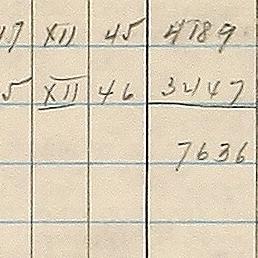 17 XII 45 4189
5 XII 46 3447
7636